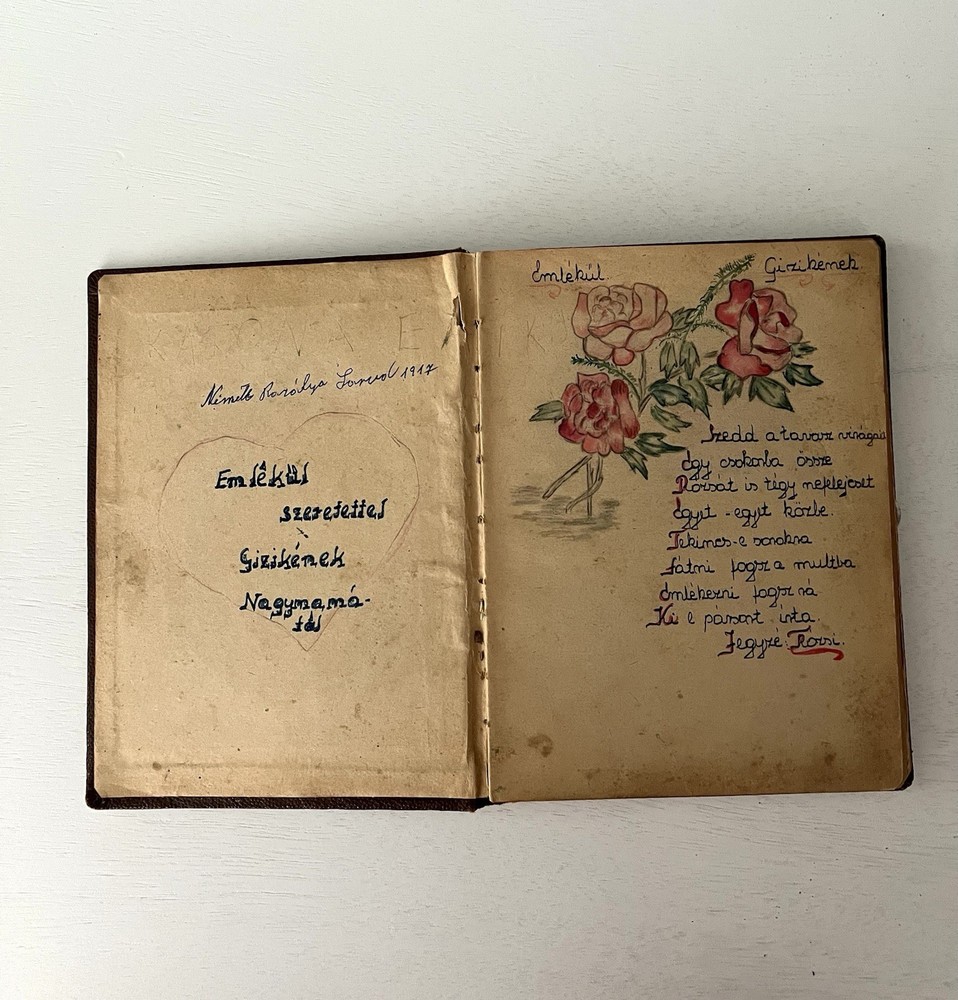 Németh 1917
Emlékül
szeretettel
Gizikének
Nagymamá-
tól
Emlékül Gizikének
Szedd a tavasz virágait
Egy csokorba össze
Rózsát is tégy nefelejcset
Egyet-egyet közbe.
Tekincs-e sorokra
Látni fogsz a multba
Emlékezni fogsz rá
Ki e pársort irta.
Jegyzé: Rózsi.